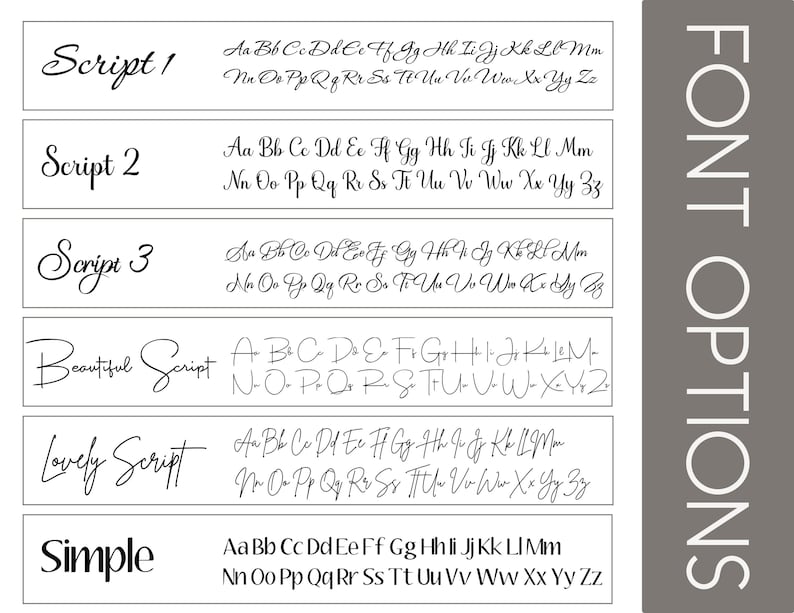 Script 1
Aa Bb Cc Dd Ee Ff Gg Hh Ii Jj Kk Ll Mm
Nn Oo Pp Qq Rr Ss Tt Uu Vv Ww Xx Yy Zz
Script 2
Aa Bb Cc Dd Ee Ff Gg Hh Ii Jj Kk Ll Mm
Nn Oo Pp Qq Rr Ss Tt Uu Vv Ww Xx Yy Zz
Script 3
Aa Bb Cc Dd Ee Ff Gg Hh Ii Jj Kk Ll Mm
Nn Oo Pp Qq Rr Ss Tt Uu Vv Ww Xx Yy Zz
Beautiful Script
Aa Bb Cc Dd Ee Ff Gg Hh Ii Jj Kk Ll Mm
Nn Oo Pp Qq Rr Ss Tt Uu Vv Ww Xx Yy Zz
Lovely Script
Aa Bb Cc Dd Ee Ff Gg Hh Ii Jj Kk Ll Mm
Nn Oo Pp Qq Rr Ss Tt Uu Vv Ww Xx Yy Zz
Simple
Aa Bb Cc Dd Ee Ff Gg Hh Ii Jj Kk Ll Mm
Nn Oo Pp Qq Rr Ss Tt Uu Vv Ww Xx Yy Zz
FONT OPTIONS